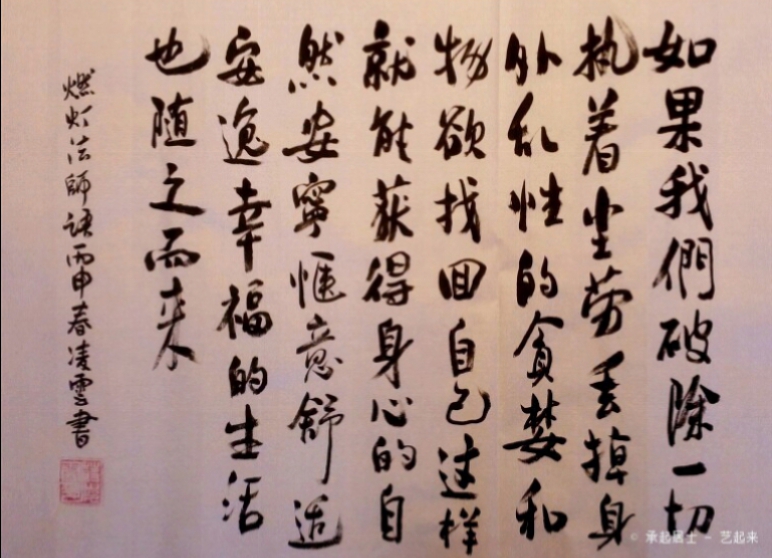 如果我們破除一切
执着尘劳丢掉身
外乱性的貪婪和
物欲找回自己这样
就能获得身心的自
然安寧惬意舒适
安逸幸福的生活
也随之而来
燃灯法師语丙申春凌雲書
© 承起居士 - 艺起来